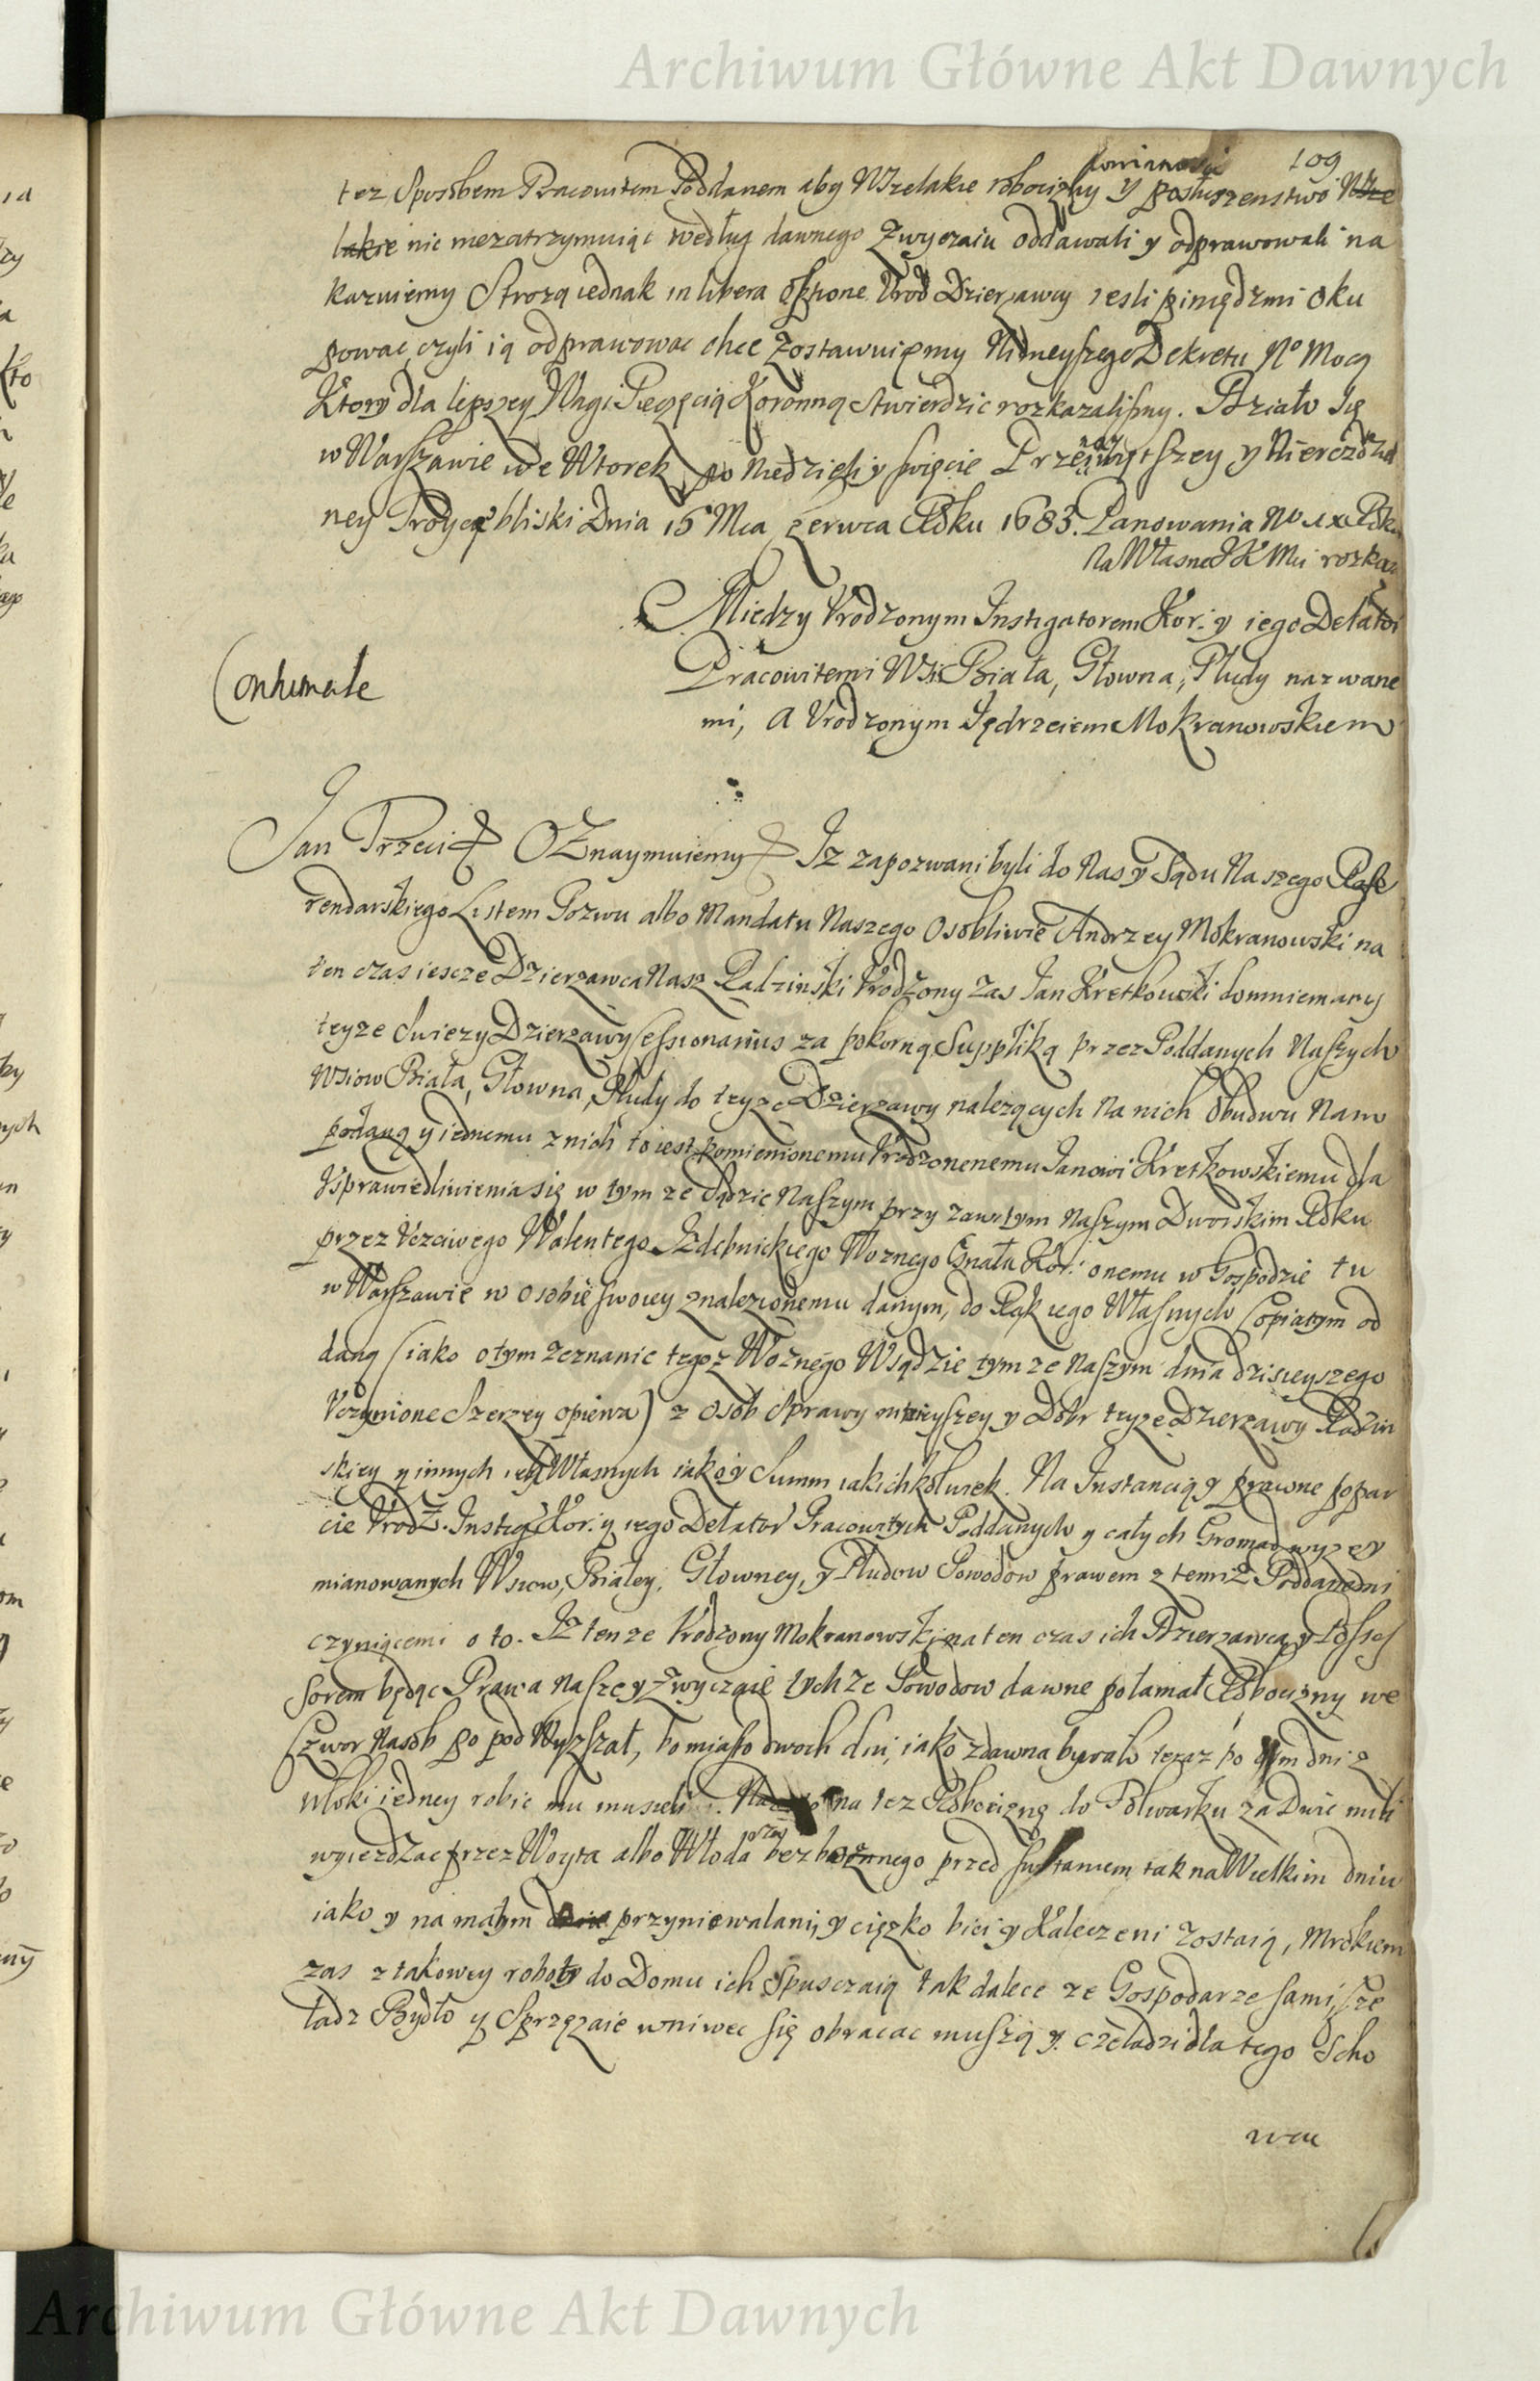 Archiwum Główne Akt Dawnych
109
powinnosci
tez Sposobem Pracowitem Poddanem aby Wszelakie robocizny y posłuszenstwo Wsze
lakie nic niezatrzymuiąc według dawnego Zwyczaiu oddawali y odprawowali na
kazuiemy Strozą iednak in libera optione Urod Dzierzawcy iesli pieniędzmi oku
powac, czyli ią odprawowac chce Zostawuiemy Ninieyszego Dekretu No Mocą
Ktory dla lepszey Wagi Pieczęcią Koronną stwierdzic rozkazalismy. Działo się
w Warszawie we Wtorek po Niedzieli y swięcie Przenayswiętszey y Nierozdziel
ney Troycy bliski Dnia 15 Mca Czerwca Roku 1683. Panowania No IX Roku
Na Własne JK Mci rozkaz
Między Urodzonym Instigatorem Kor: y iego Delator
Pracowitemi Wsi Biała, Głowna, Płudy nazwane
Contumatie
mi, A Urodzonym Jędrzeiem Mokranowskiem
Jan Trzeci & Oznaymuiemy & Iz zapozwani byli do Nas y Sądu Naszego Refe
rendarskiego Listem Pozwu albo Mandatu Naszego Osobliwie Andrzey Mokranowski na
ten czas iescze Dzierzawca Nasz Radzinski Urodzony zas Jan Kretkowski domniemany
teyze swiezy Dzierzawy Cessionarius za pokorną Suppliką przez Poddanych Naszych
Wsiow Biała, Głowna, Płudy do teyze Dzierzawy nalezących Na nich Obudwu Nam
podaną y iednemu z nich to iest pomienionemu Urodzonenemu Janowi Kretkowskiemu dla
Usprawiedliwienia się w tym ze Sądzie Naszym przy zawitym Naszym Dworskim Roku
przez Uczciwego Walentego Zdebnickiego Woznego Gnału Kor: onemu w Gospodzie tu
w Warszawie w osobie swoiey znalezionemu danym, do Rąk iego Własnych Copiatym od
daną (iako o tym zeznanie tegoz Woznego W sądzie tym ze Naszym dnia dzisieyszego
Uczynione Szerzey opiewa) z osob Sprawy ninieyszey y Dobr teyze Dzierzawy Radzin
skiey y innych iego Własnych iako y Summ iakichkolwiek. Na Instancią y prawne popar
cie Urodz. Instig: Kor: y iego Delator Pracowitych Poddanych y całych Gromad wyzey
mianowanych Wsiow, Białey, Głowney, y Płudow Powodow prawem z temiz Poddanemi
czyniącemi o to. Iz tenze Urodzony Mokranowski na ten czas ich Dzierzawcą y Posses
sorem będąc Prawa Nasze y Zwyczaie tychze Powodow dawne połamał Robocizny we
czwor Nasob po pod Wyzszał, bo miasto dwoch dni, iako zdawna bywało teraz po dni z
włoki iedney robic mu musieli. na tez Robociznę do Folwarku za Dwie mili
wyiezdzac przez Woyta albo Włodarza bezboznego przed switaniem tak na Wielkim dniu
iako y na małym przyniewalani, y cięzko bici y Kaleczeni zostaią, Mrokiem
zas z takowey roboty do Domu ich Spusczaią tak dalece ze Gospodarze sami, Cze
ladz Bydło y Sprzęzaie wniwec się obracac muszą y czeladzi dla tego Scho
wac
Archiwum Główne Akt Dawnych